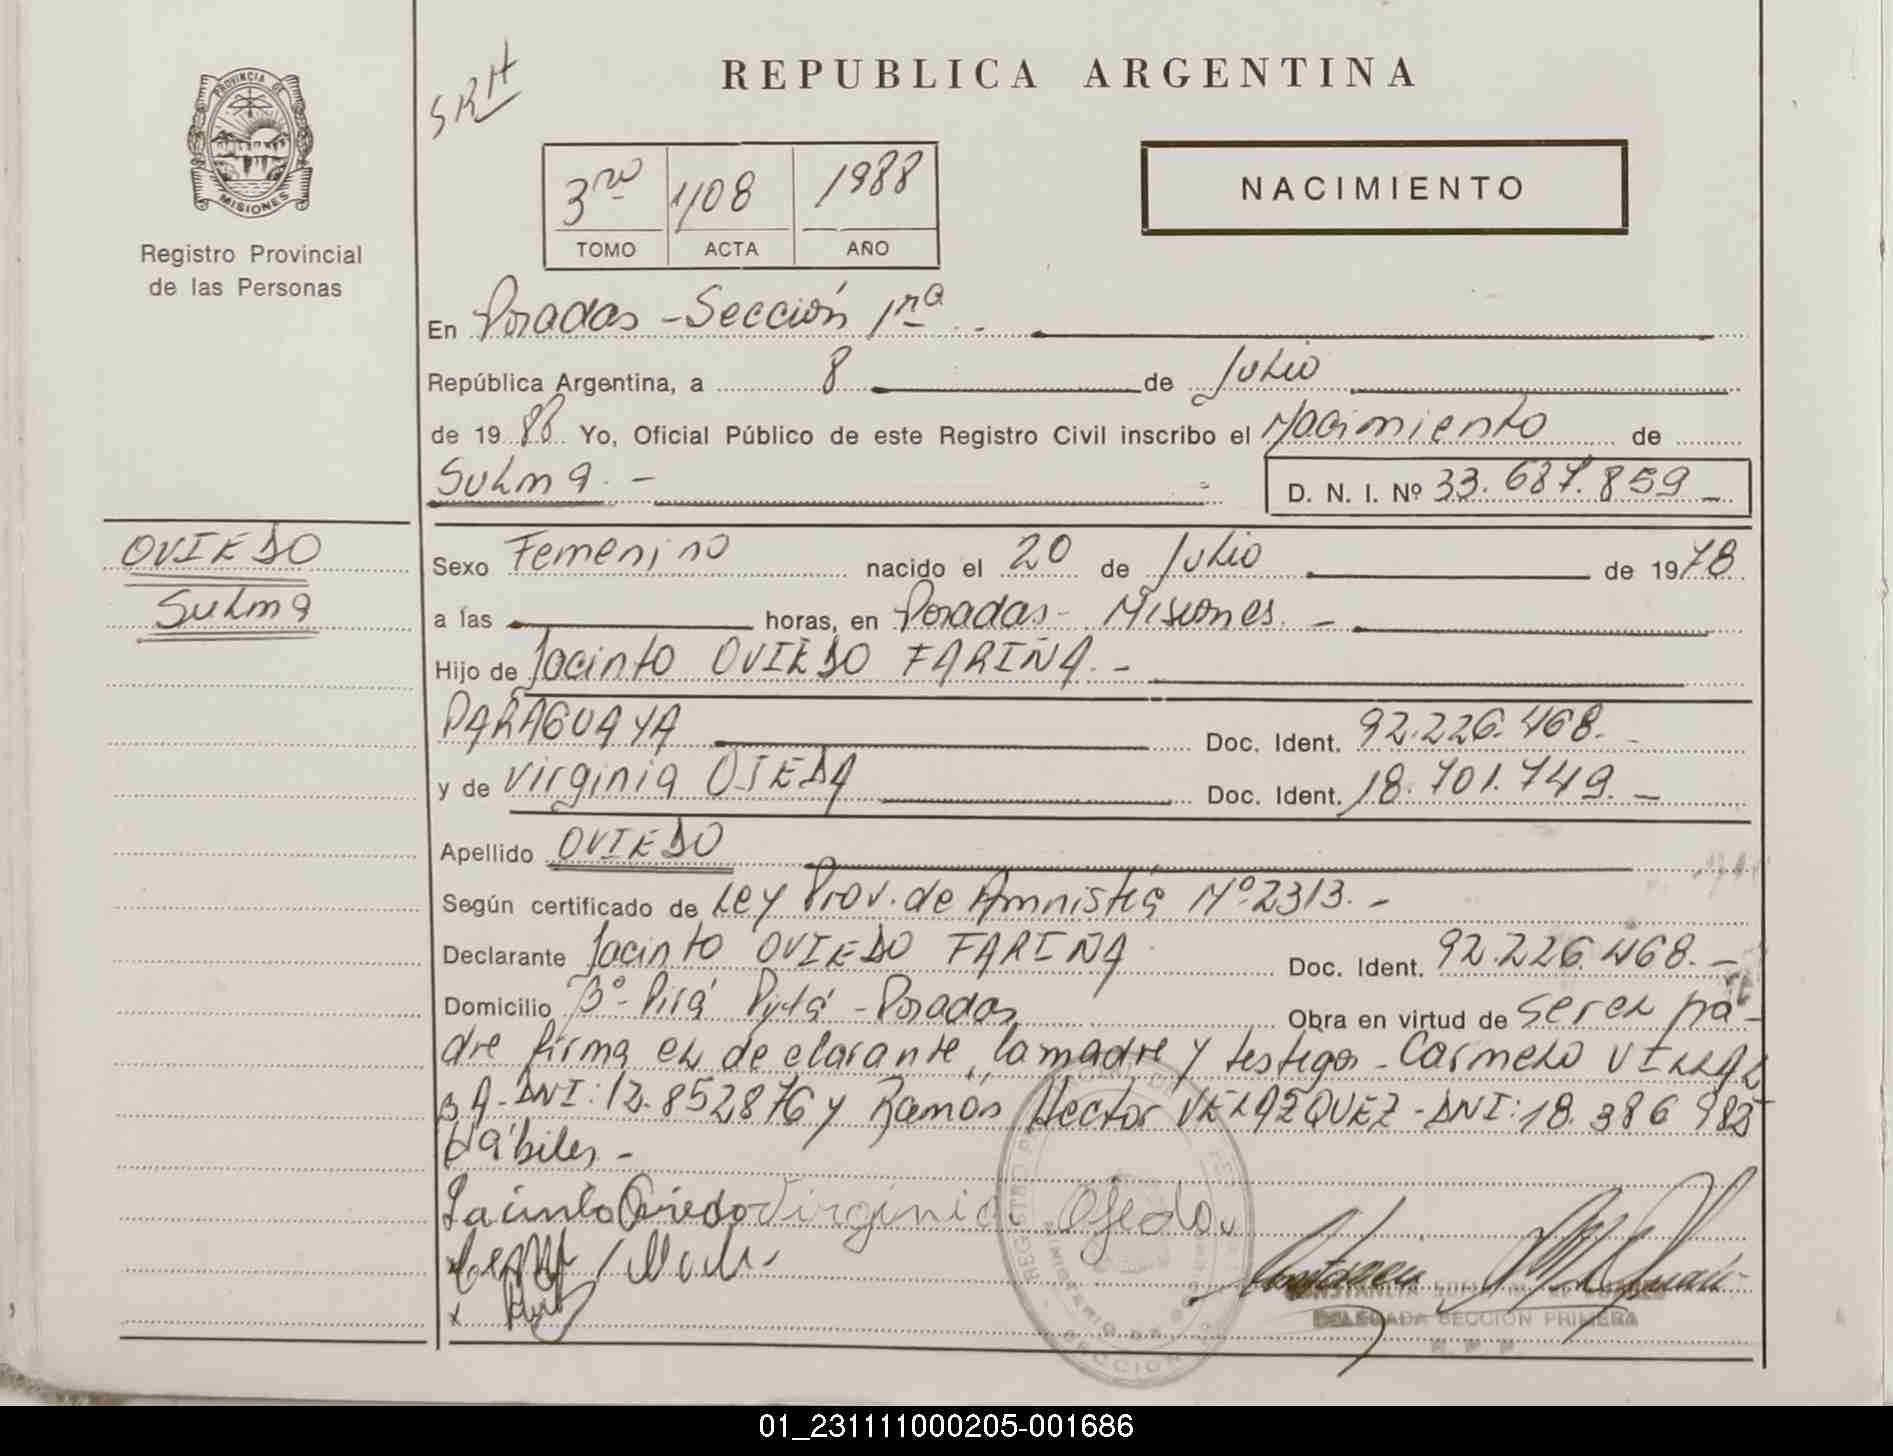 SRH
REPUBLICA ARGENTINA
PROVINCIA DE
MISIONES
Registro Provincial
de las Personas
3ro 1108 1988
TOMO ACTA AÑO
NACIMIENTO
En Posadas - Sección 1ra. -
República Argentina, a 8 de Julio
de 1988 Yo, Oficial Público de este Registro Civil inscribo el Nacimiento de
Sulma. -
D. N. I. Nº 33.687.859 -
OVIEDO
Sulma
Sexo Femenino nacido el 20 de Julio de 1978
a las horas, en Posadas - Misiones. -
Hijo de Jacinto OVIEDO FARIÑA. -
PARAGUAYA Doc. Ident. 92.226.468. -
y de Virginia OJEDA Doc. Ident. 18.701.749. -
Apellido OVIEDO
Según certificado de Ley Prov. de Amnistía Nº 2313. -
Declarante Jacinto OVIEDO FARIÑA Doc. Ident. 92.226.468. -
Domicilio Bº - Pirá Pytá - Posadas Obra en virtud de ser el pa-
dre firma el declarante, la madre y testigos - Carmelo VILLAL
BA - DNI: 12.852876 y Ramón Hector VELAZQUEZ - DNI: 18.386 982
Hábiles -
Jacinto Oviedo Virginia Ojeda
DELEGADA SECCION PRIMERA
01_231111000205-001686